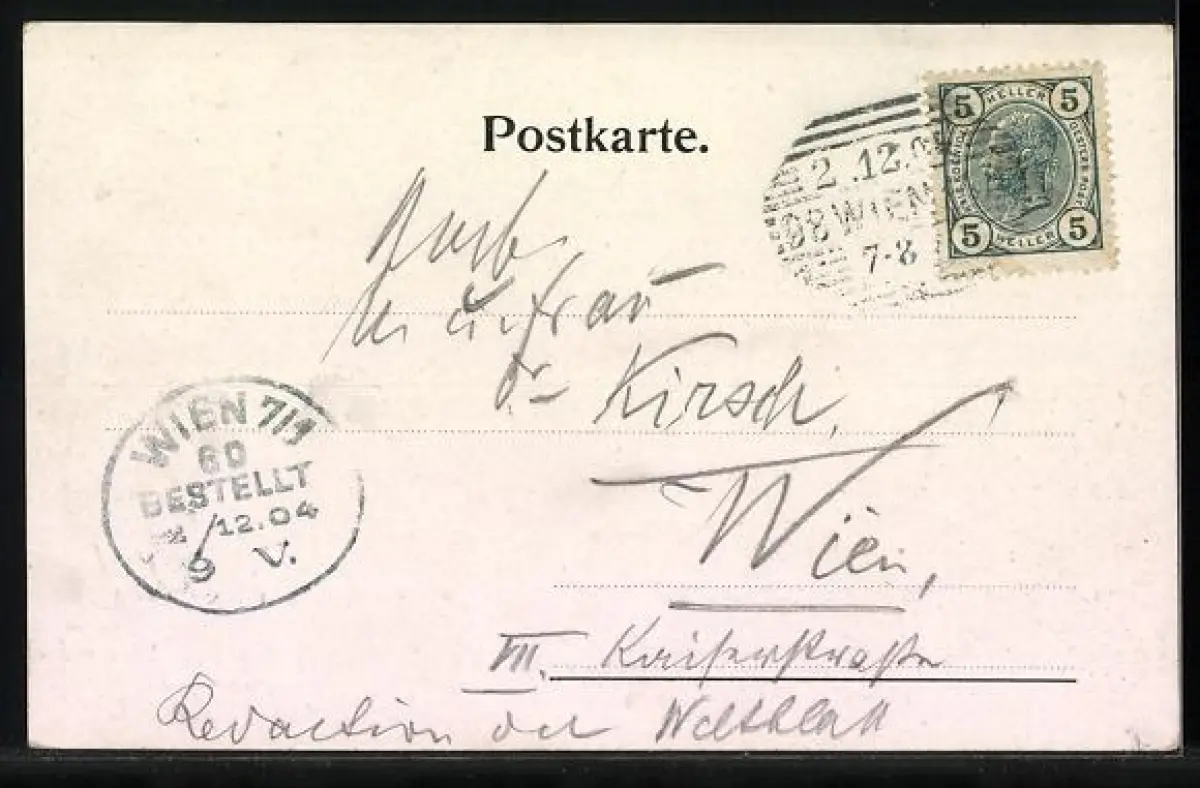 Postkarte.
5 HELLER 5
5 HELLER 5
2.12.0
98 WIEN
7-8
u. Frau
Dr Kirsch,
Wien,
VII. Kaiserstraße
Redaction der Weltblatt
WIEN 7/1
60
BESTELLT
2/12.04
9 V.